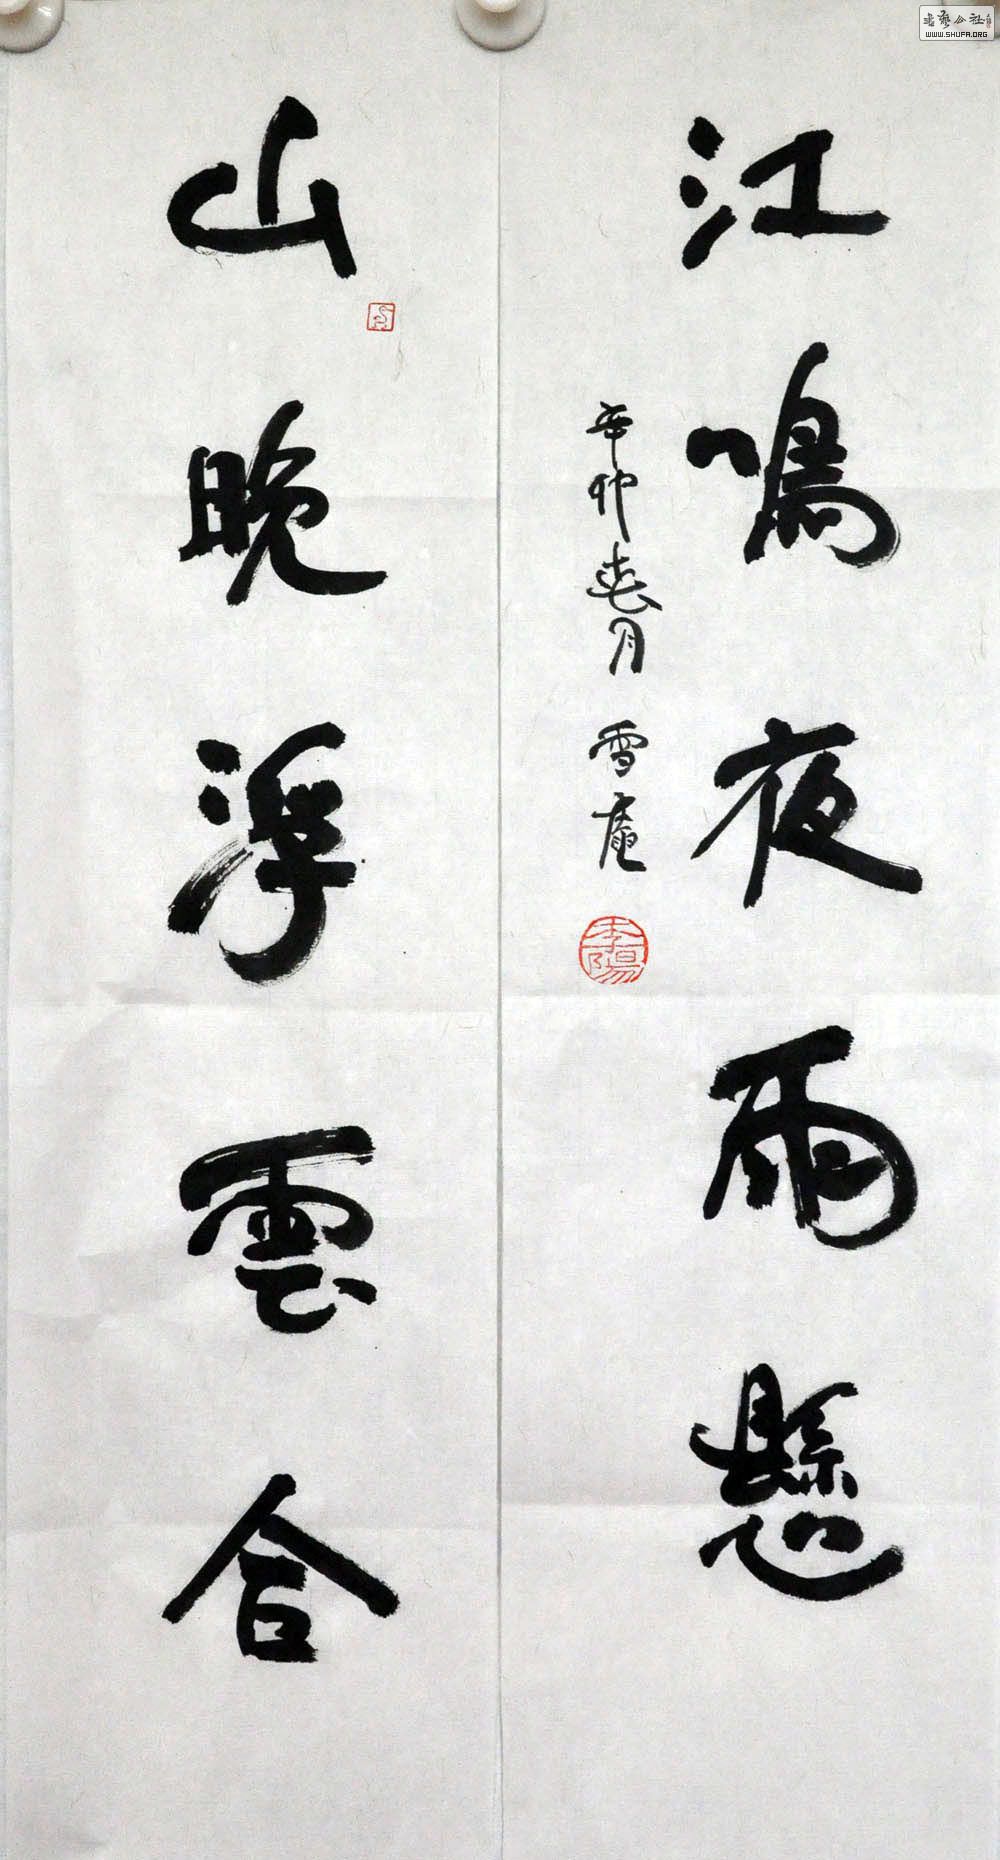 江鳴夜雨懸
辛卯春月 雪庵
李陽
山晚浮雲合
書藝公社
WWW.SHUFA.ORG